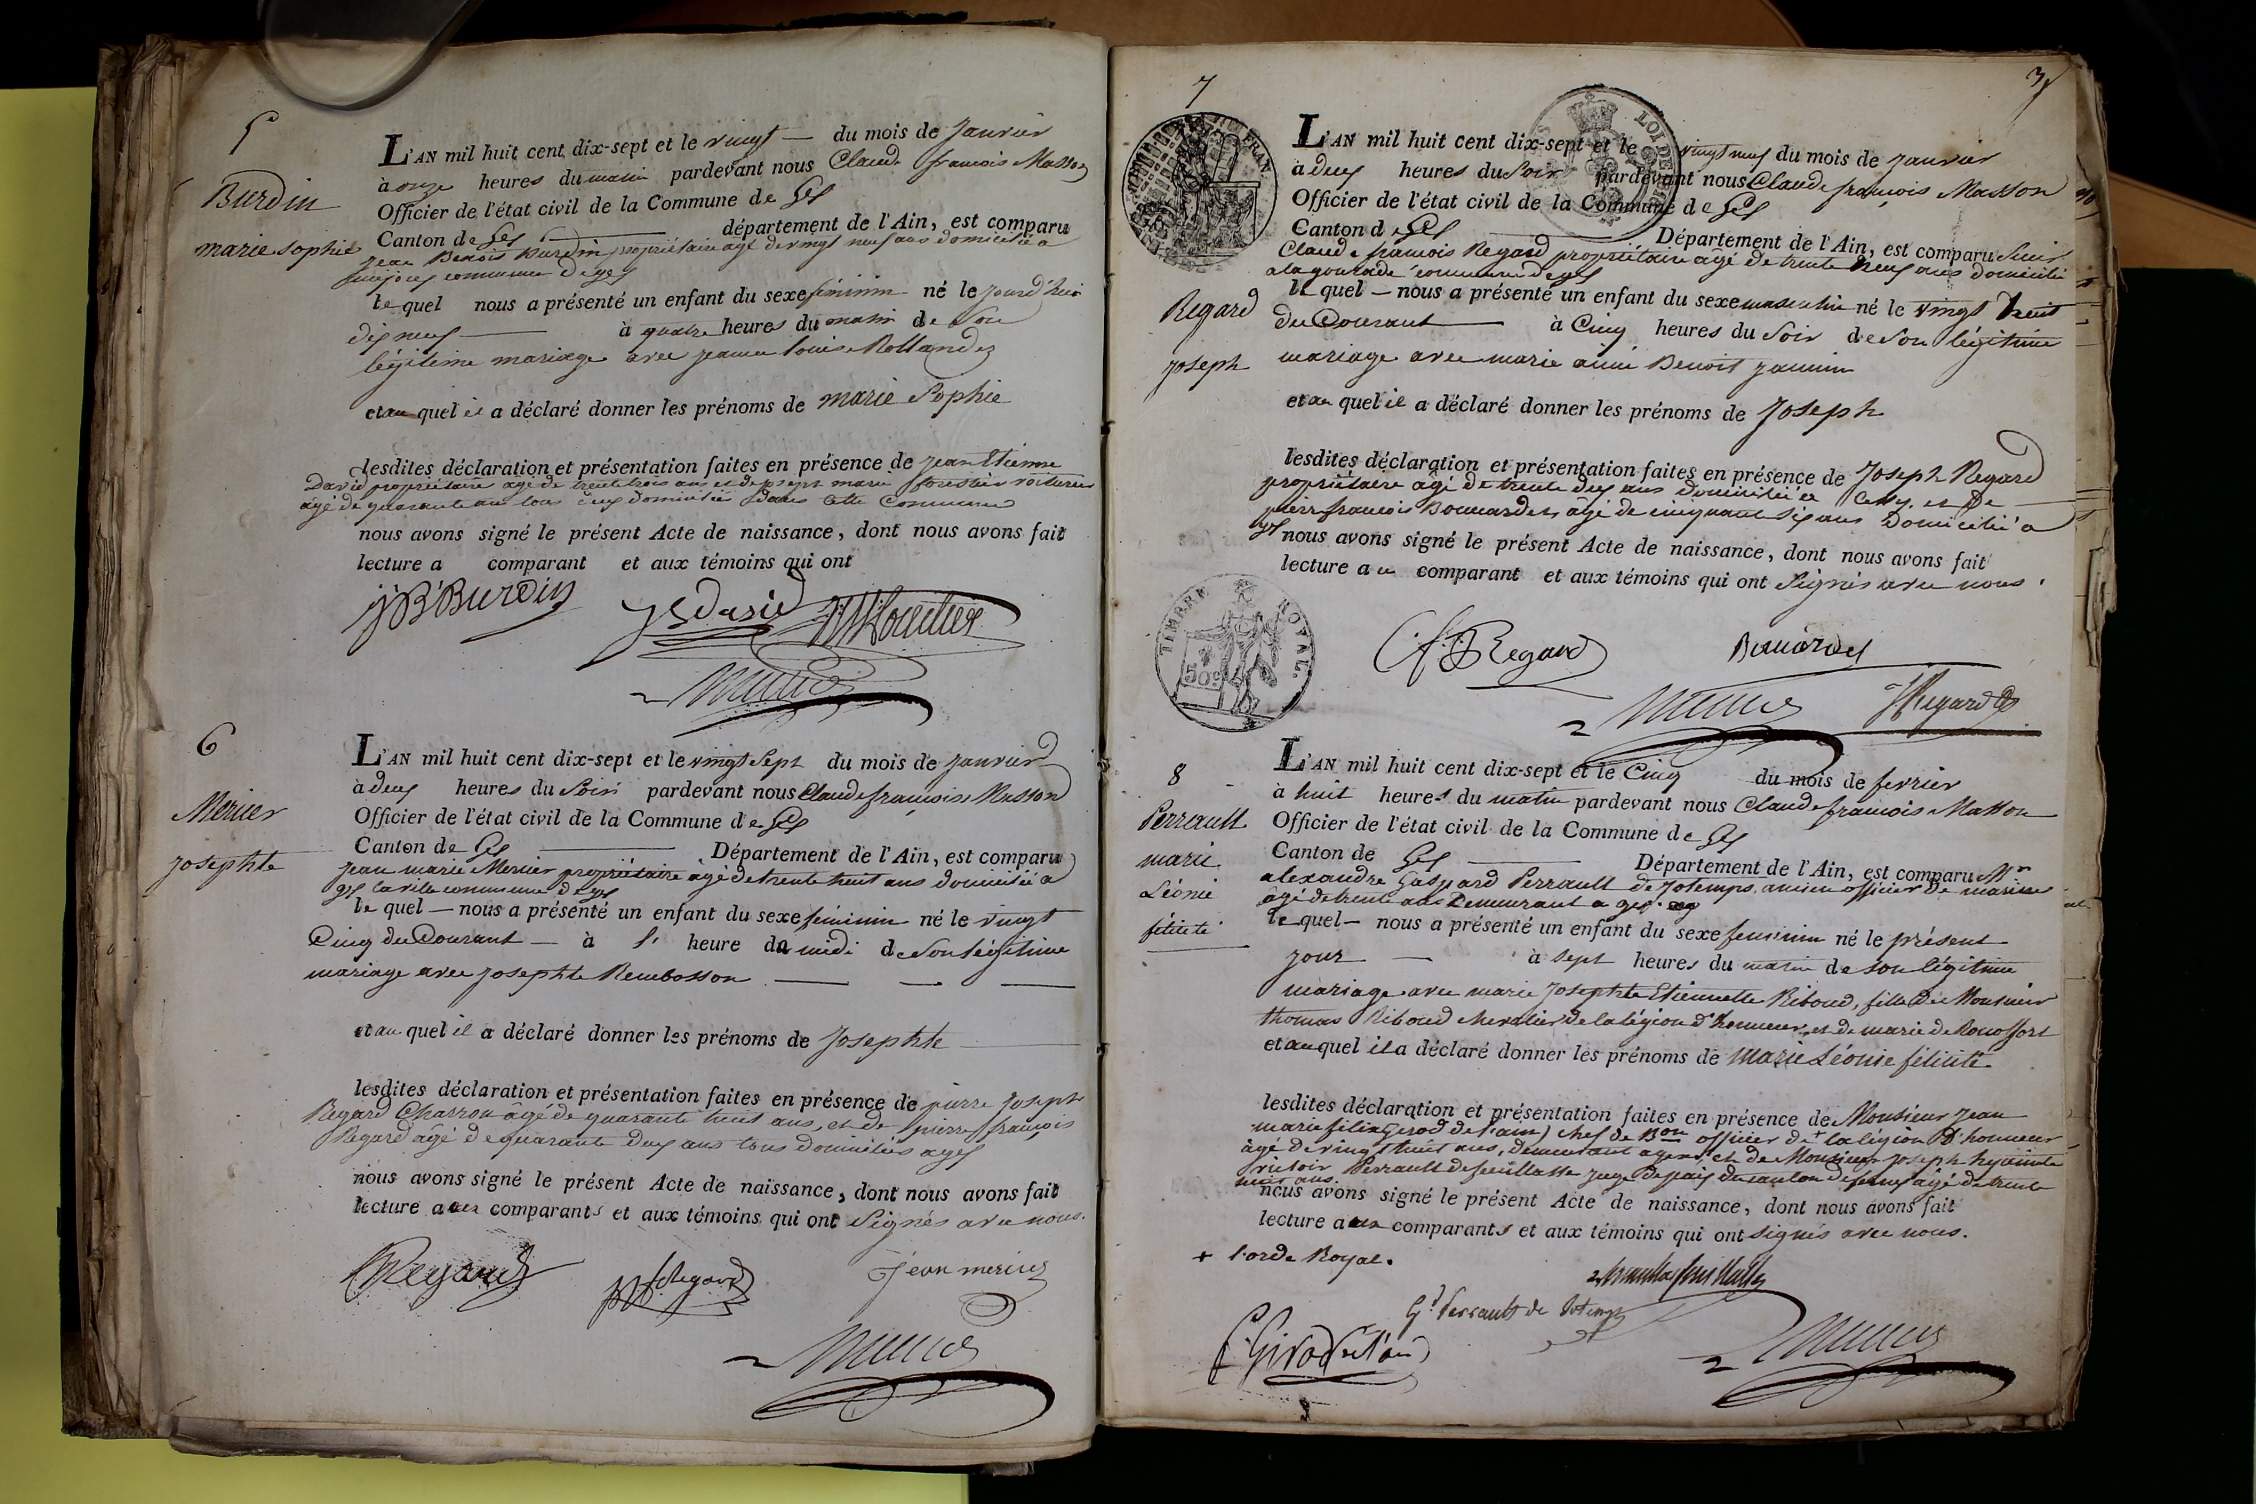 5
Burdin
marie sophie
L'AN mil huit cent dix-sept et le vingt du mois de janvier
à onze heures du matin pardevant nous Claude francois Masson
Officier de l'état civil de la Commune de Gex
Canton de Gex département de l'Ain, est comparu
jean Benoit Burdin propriétaire agé de vingt neuf ans domicilié a
commune de gex
lequel nous a présenté un enfant du sexe féminin né le jourd'hui
dix neuf à quatre heures du matin de son
légitime mariage avec jeanne louise Rollandez
et au quel il a déclaré donner les prénoms de marie Sophie
lesdites déclaration et présentation faites en présence de jean Etienne
David propriétaire agé de trente trois ans et de joseph marie forestier voiturier
âgé de quarante an tous deux domiciliés dans cette commune
nous avons signé le présent Acte de naissance, dont nous avons fait
lecture a comparant et aux témoins qui ont
JB Burdin
6
Mercier
josephte
L'AN mil huit cent dix-sept et le vingt sept du mois de janvier
à deux heures du Soir pardevant nous Claude françois Masson
Officier de l'état civil de la Commune de Gex
Canton de Gex Département de l'Ain, est comparu
jean marie Mercier propriétaire âgé de trente huit ans domicilié a
gex la ville commune de gex
lequel nous a présenté un enfant du sexe féminin né le vingt
Cinq du Courant à 1. heure da midi de Son légitime
mariage avec josephte Rembosson
et au quel il a déclaré donner les prénoms de josephte
lesdites déclaration et présentation faites en présence de pierre joseph
Regard Charron âgé de quarante huit ans, et de pierre françois
Regard âgé de quarante deux ans tous domiciliés a gex
nous avons signé le présent Acte de naissance, dont nous avons fait
lecture a aux comparants et aux témoins qui ont Signés avec nous.
Regard
Regard
jean mercier
7
3
L'AN mil huit cent dix-sept et le vingt neuf du mois de janvier
à deux heures du Soir pardevant nous Claude françois Masson
Officier de l'état civil de la Commune de Gex
Canton de Gex Département de l'Ain, est comparu Sieur
Claude francois Regard propriétaire âgé de trente neuf ans domicilié
a la commune de gex
Regard
joseph
lequel nous a présenté un enfant du sexe masculin né le vingt huit
du Courant à Cinq heures du Soir de Son légitime
mariage avec marie aimé Benoit jannin
et au quel il a déclaré donner les prénoms de Joseph
lesdites déclaration et présentation faites en présence de Joseph Regard
propriétaire âgé de trente deux ans domicilié a Cessy. et de
pierre francois Bouvardet, âgé de cinquante Six ans domicilié a
gex
nous avons signé le présent Acte de naissance, dont nous avons fait
lecture a u comparant et aux témoins qui ont Signés avec nous.
TIMBRE ROYAL.
50c
C.f. Regard
Regard
8
Perrault
marie
Léonie
félicité
L'AN mil huit cent dix-sept et le Cinq du mois de fevrier
à huit heures du matin pardevant nous Claude françois Masson
Officier de l'état civil de la Commune de Gex
Canton de Gex Département de l'Ain, est comparu Mr
alexandre Gaspard Perrault de jotemps, ancien officier de marine
âgé de trente ans Demeurant a gex
lequel nous a présenté un enfant du sexe feminin né le présent
jour à sept heures du matin de son légitime
mariage avec marie Josephte Etiennette Riboud, fille de Monsieur
thomas Riboud chevalier de la légion d'honneur, et de marie de Rouossort
et au quel il a déclaré donner les prénoms de Marie Léonie félicité
lesdites déclaration et présentation faites en présence de Monsieur jean
marie felix Girod de l'ain) chef de Bon officier de + la légion d'honneur
âgé de vingt huit ans, demeurant a gex, et de Monsieur joseph hyacinthe
victoir Perrault de feuillasse juge de paix du canton de ferney âgé de trente
huit ans.
nous avons signé le présent Acte de naissance, dont nous avons fait
lecture a aux comparants et aux témoins qui ont signés avec nous.
+ l'orde Royal.
Gd Perrault de Jotemps
f. Girod de l'ain